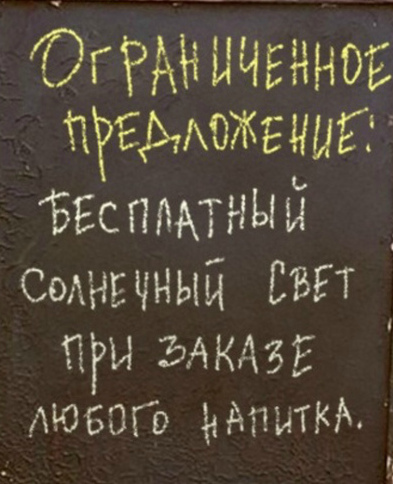 Ограниченное
предложение:
Бесплатный
солнечный свет
при заказе
любого напитка.